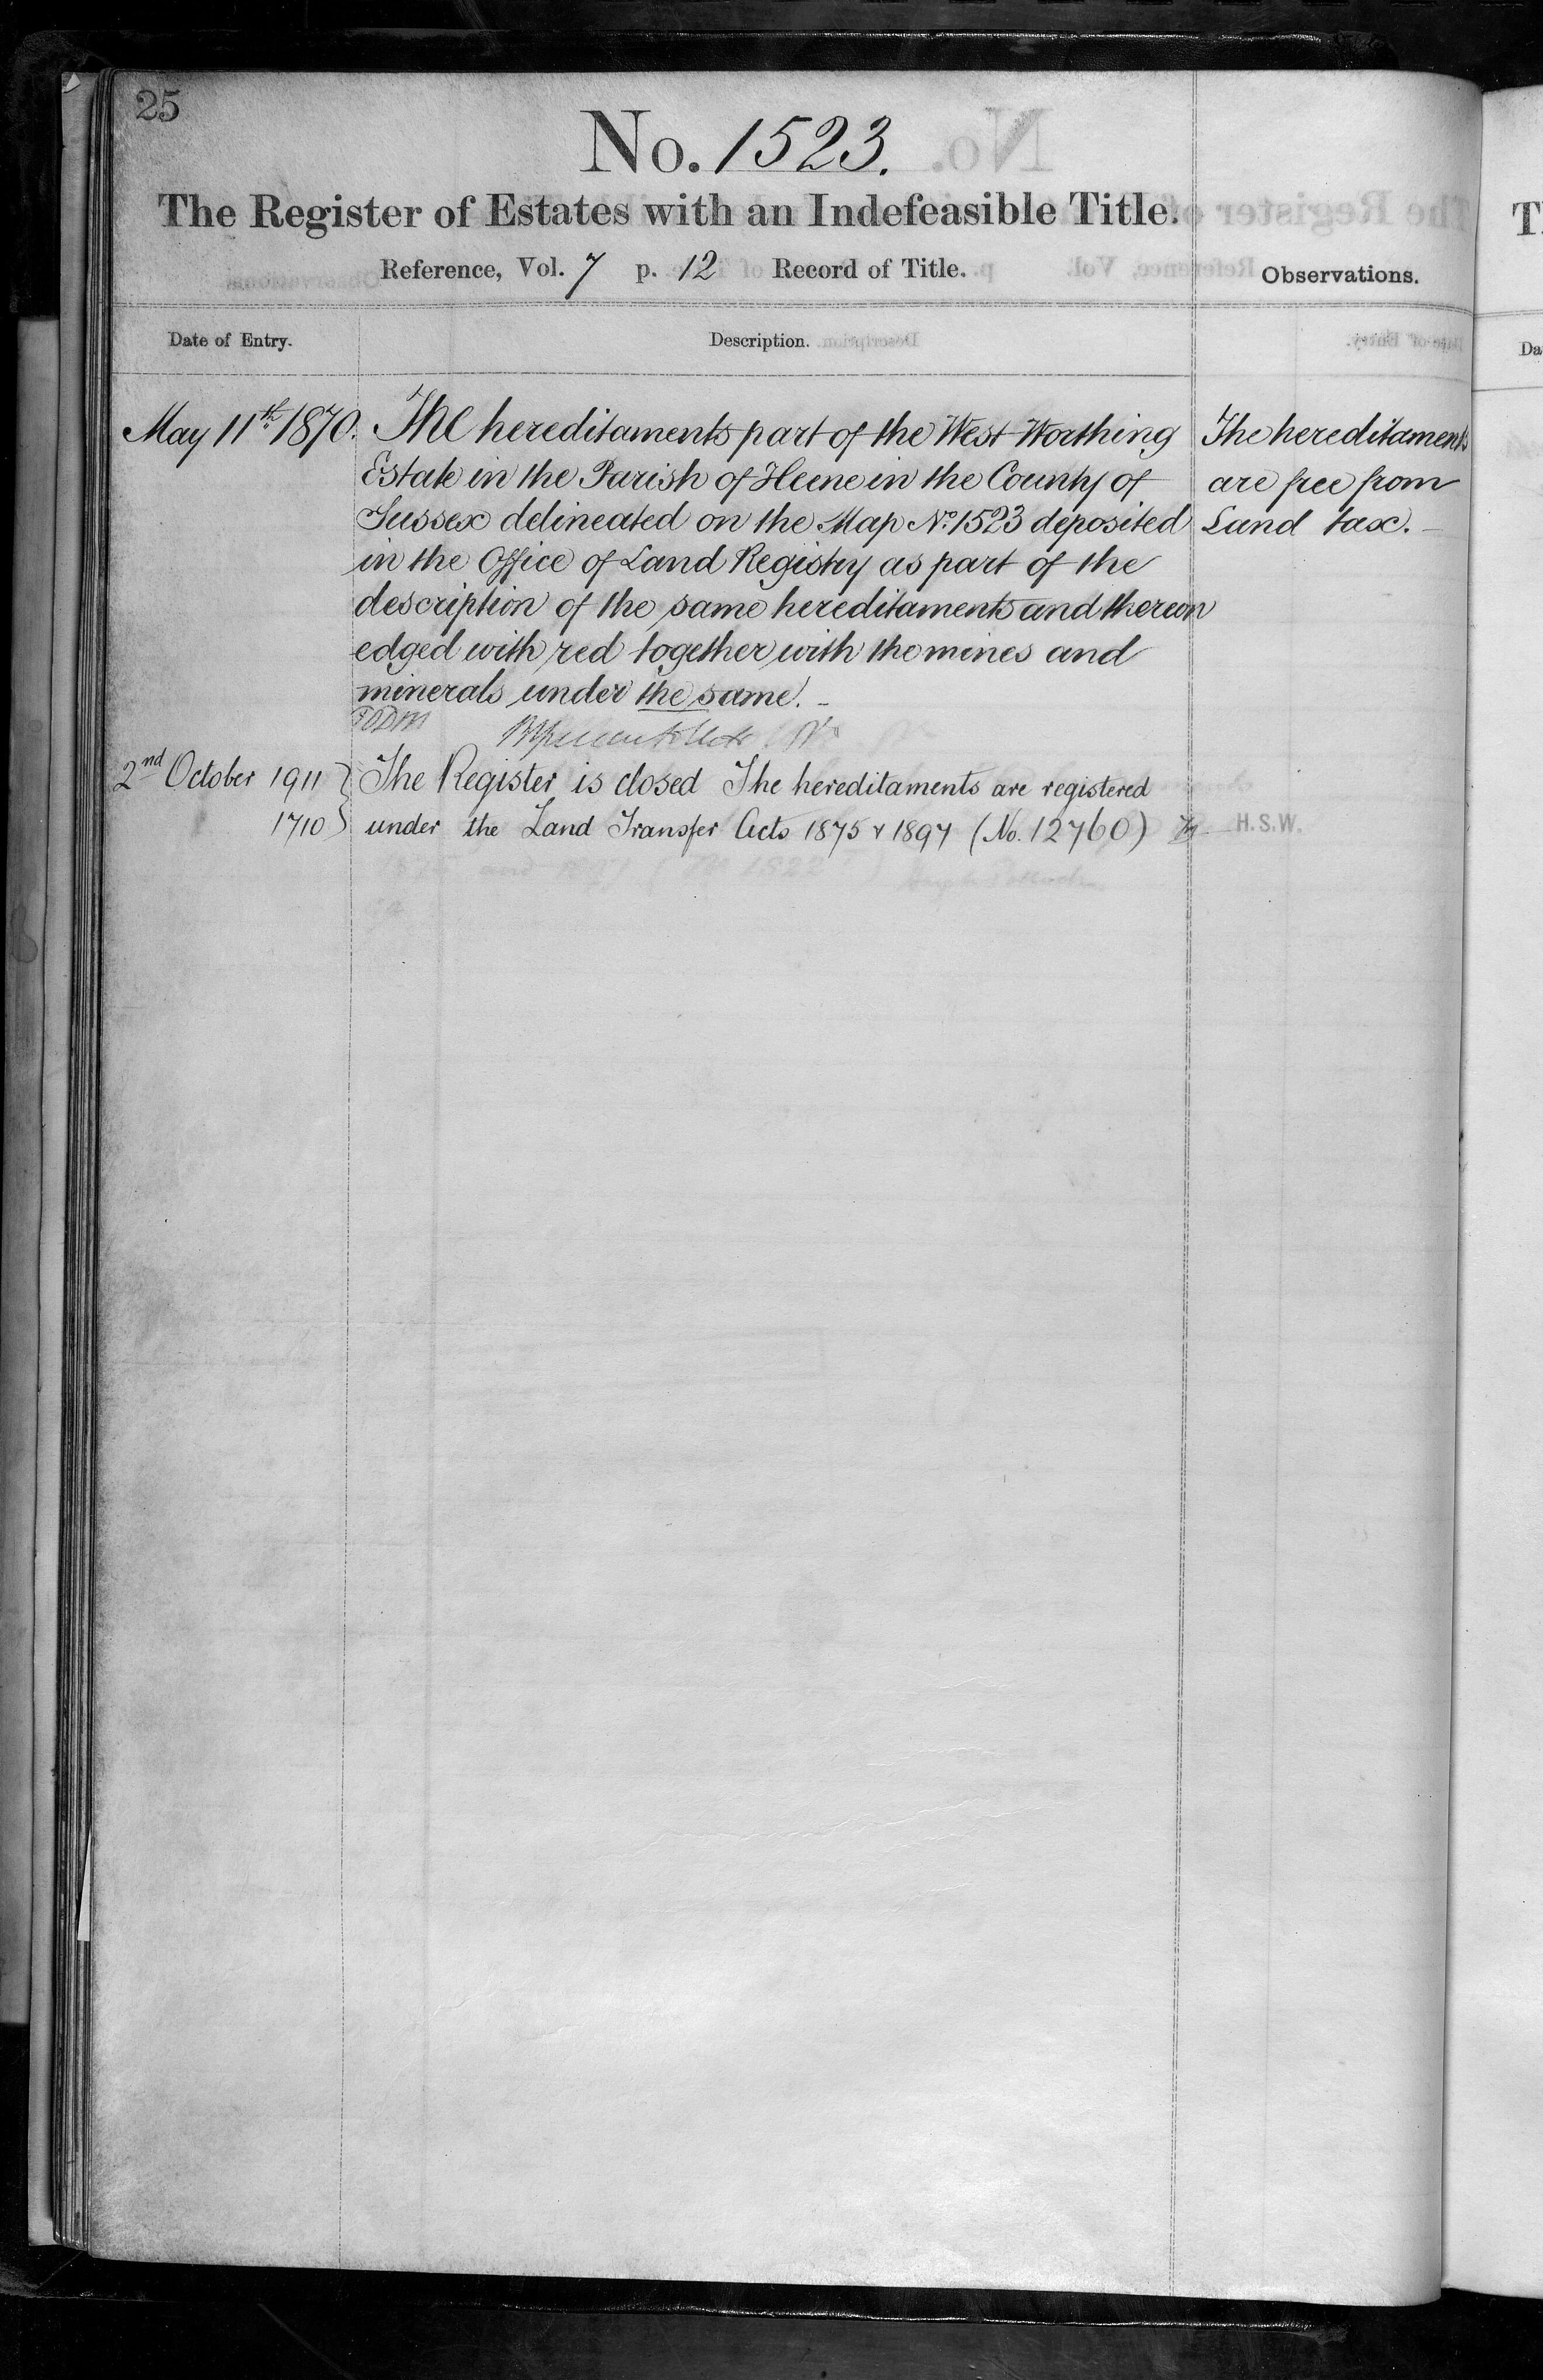 25
No. 1523.
The Register of Estates with an Indefeasible Title.
Reference, Vol. 7 p. 12 Record of Title.
Observations.
Date of Entry.
Description.
May 11th 1870.
The hereditaments part of the West Worthing
Estate in the Parish of Heene in the County of
Sussex delineated on the Map No. 1523 deposited
in the Office of Land Registry as part of the
description of the same hereditaments and thereon
edged with red together with the mines and
minerals under the same. -
The hereditaments
are free from
Land tax. -
2nd October 1911
1710
The Register is closed The hereditaments are registered
under the Land Transfer Acts 1875 & 1897 (No. 12760)
H.S.W.